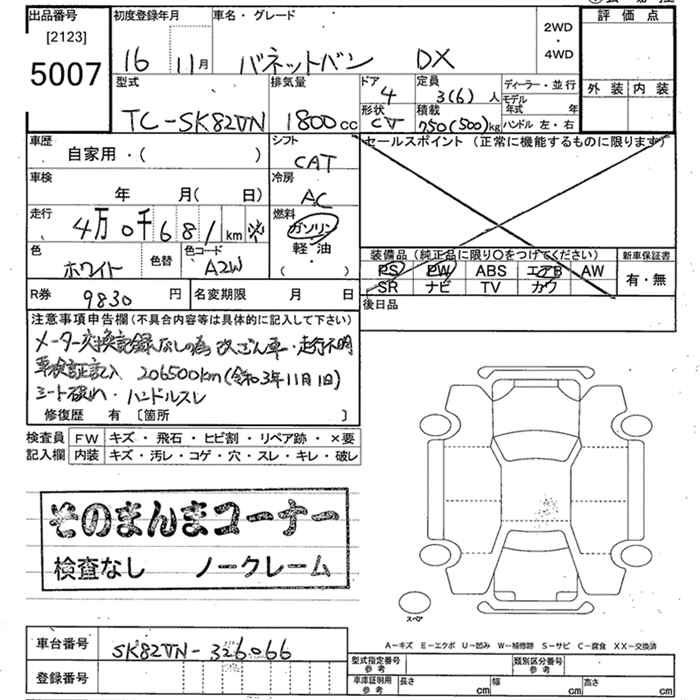 出品番号 初度登録年月 車名・グレード 2WD・4WD 評価点
[2123]
5007
16 11月 バネットバン DX
外装 内装
型式 排気量 ドア 定員 ディーラー・並行
4 3(6)人 モデル年式 年
TC-SK82VN 1800cc 形状 積載 ハンドル 左・右
CV 750(500)kg
車歴 シフト セールスポイント(正常に機能するものに限ります)
自家用・( ) CAT
車検 冷房
年 月( 日) AC
走行 燃料
4万0千681km ※ ガソリン
軽・油
( )
色 色替 色コード
ホワイト A2W
装備品(純正品に限り〇をつけてください) 新車保証書
PS PW ABS エアB AW 有・無
SR ナビ TV カワ
R券 9830円 名変期限 月 日 後日品
注意事項申告欄(不具合内容等は具体的に記入して下さい)
メーター交換記録なしの為 改ざん車・走行不明
車検証記入 206500km(令和3年11月1日)
シート破れ・ハンドルスレ
修復歴 有 〔箇所 〕
検査員 FW キズ・飛石・ヒビ割・リペア跡・×要
記入欄 内装 キズ・汚レ・コゲ・穴・スレ・キレ・破レ
そのまんまコーナー
検査なし ノークレーム
スペア
A-キズ E-エクボ U-凹み W-補修跡 S-サビ C-腐食 XX-交換済
車台番号 SK82VN-326066
型式指定番号 参考 類別区分番号 参考
登録番号
車庫証明用 参考 長さ cm 幅 cm 高さ cm